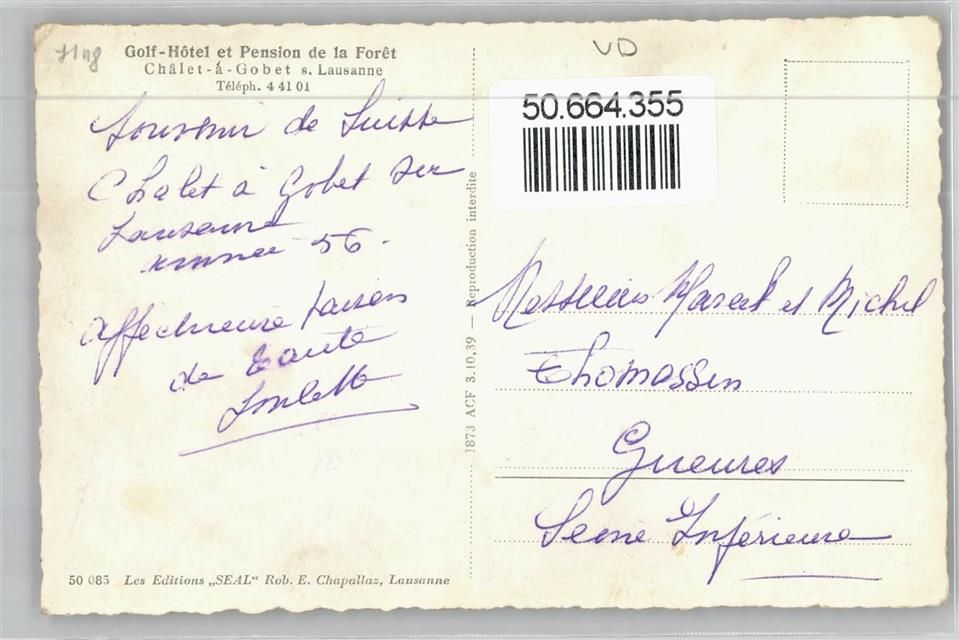 Golf-Hôtel et Pension de la Forêt
Châlet-à-Gobet s. Lausanne
Téléph. 4 41 01
Souvenir de Suisse
Chalet à Gobet sur
Lausanne
année 56.
Affectueux baisers
de Tante
VD
50.664.355
1873 ACF 3.10.39 — Reproduction interdite
Messieurs Marcel et Michel
Thomassin
Gueures
Seine Inférieure
50 085 Les Editions „SEAL“ Rob. E. Chapallaz, Lausanne